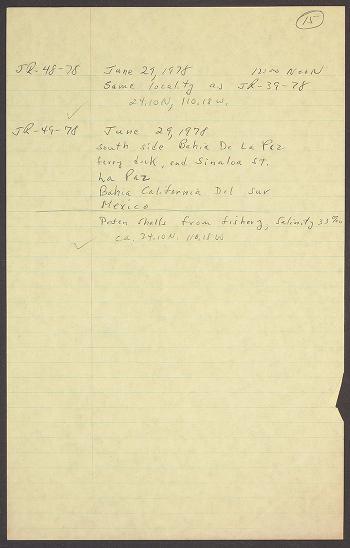 15
JR-48-78 June 29, 1978 12:00 Noon
Same locality as JR-39-78
24.10N, 110.18W.
JR-49-78 June 29, 1978
south side Bahia De La Paz
ferry dock, end Sinaloa St.
La Paz
Bahia California Del Sur
Mexico
Pecten shells from fishery, Salinity 33‰
ca. 24.10N. 110.18W